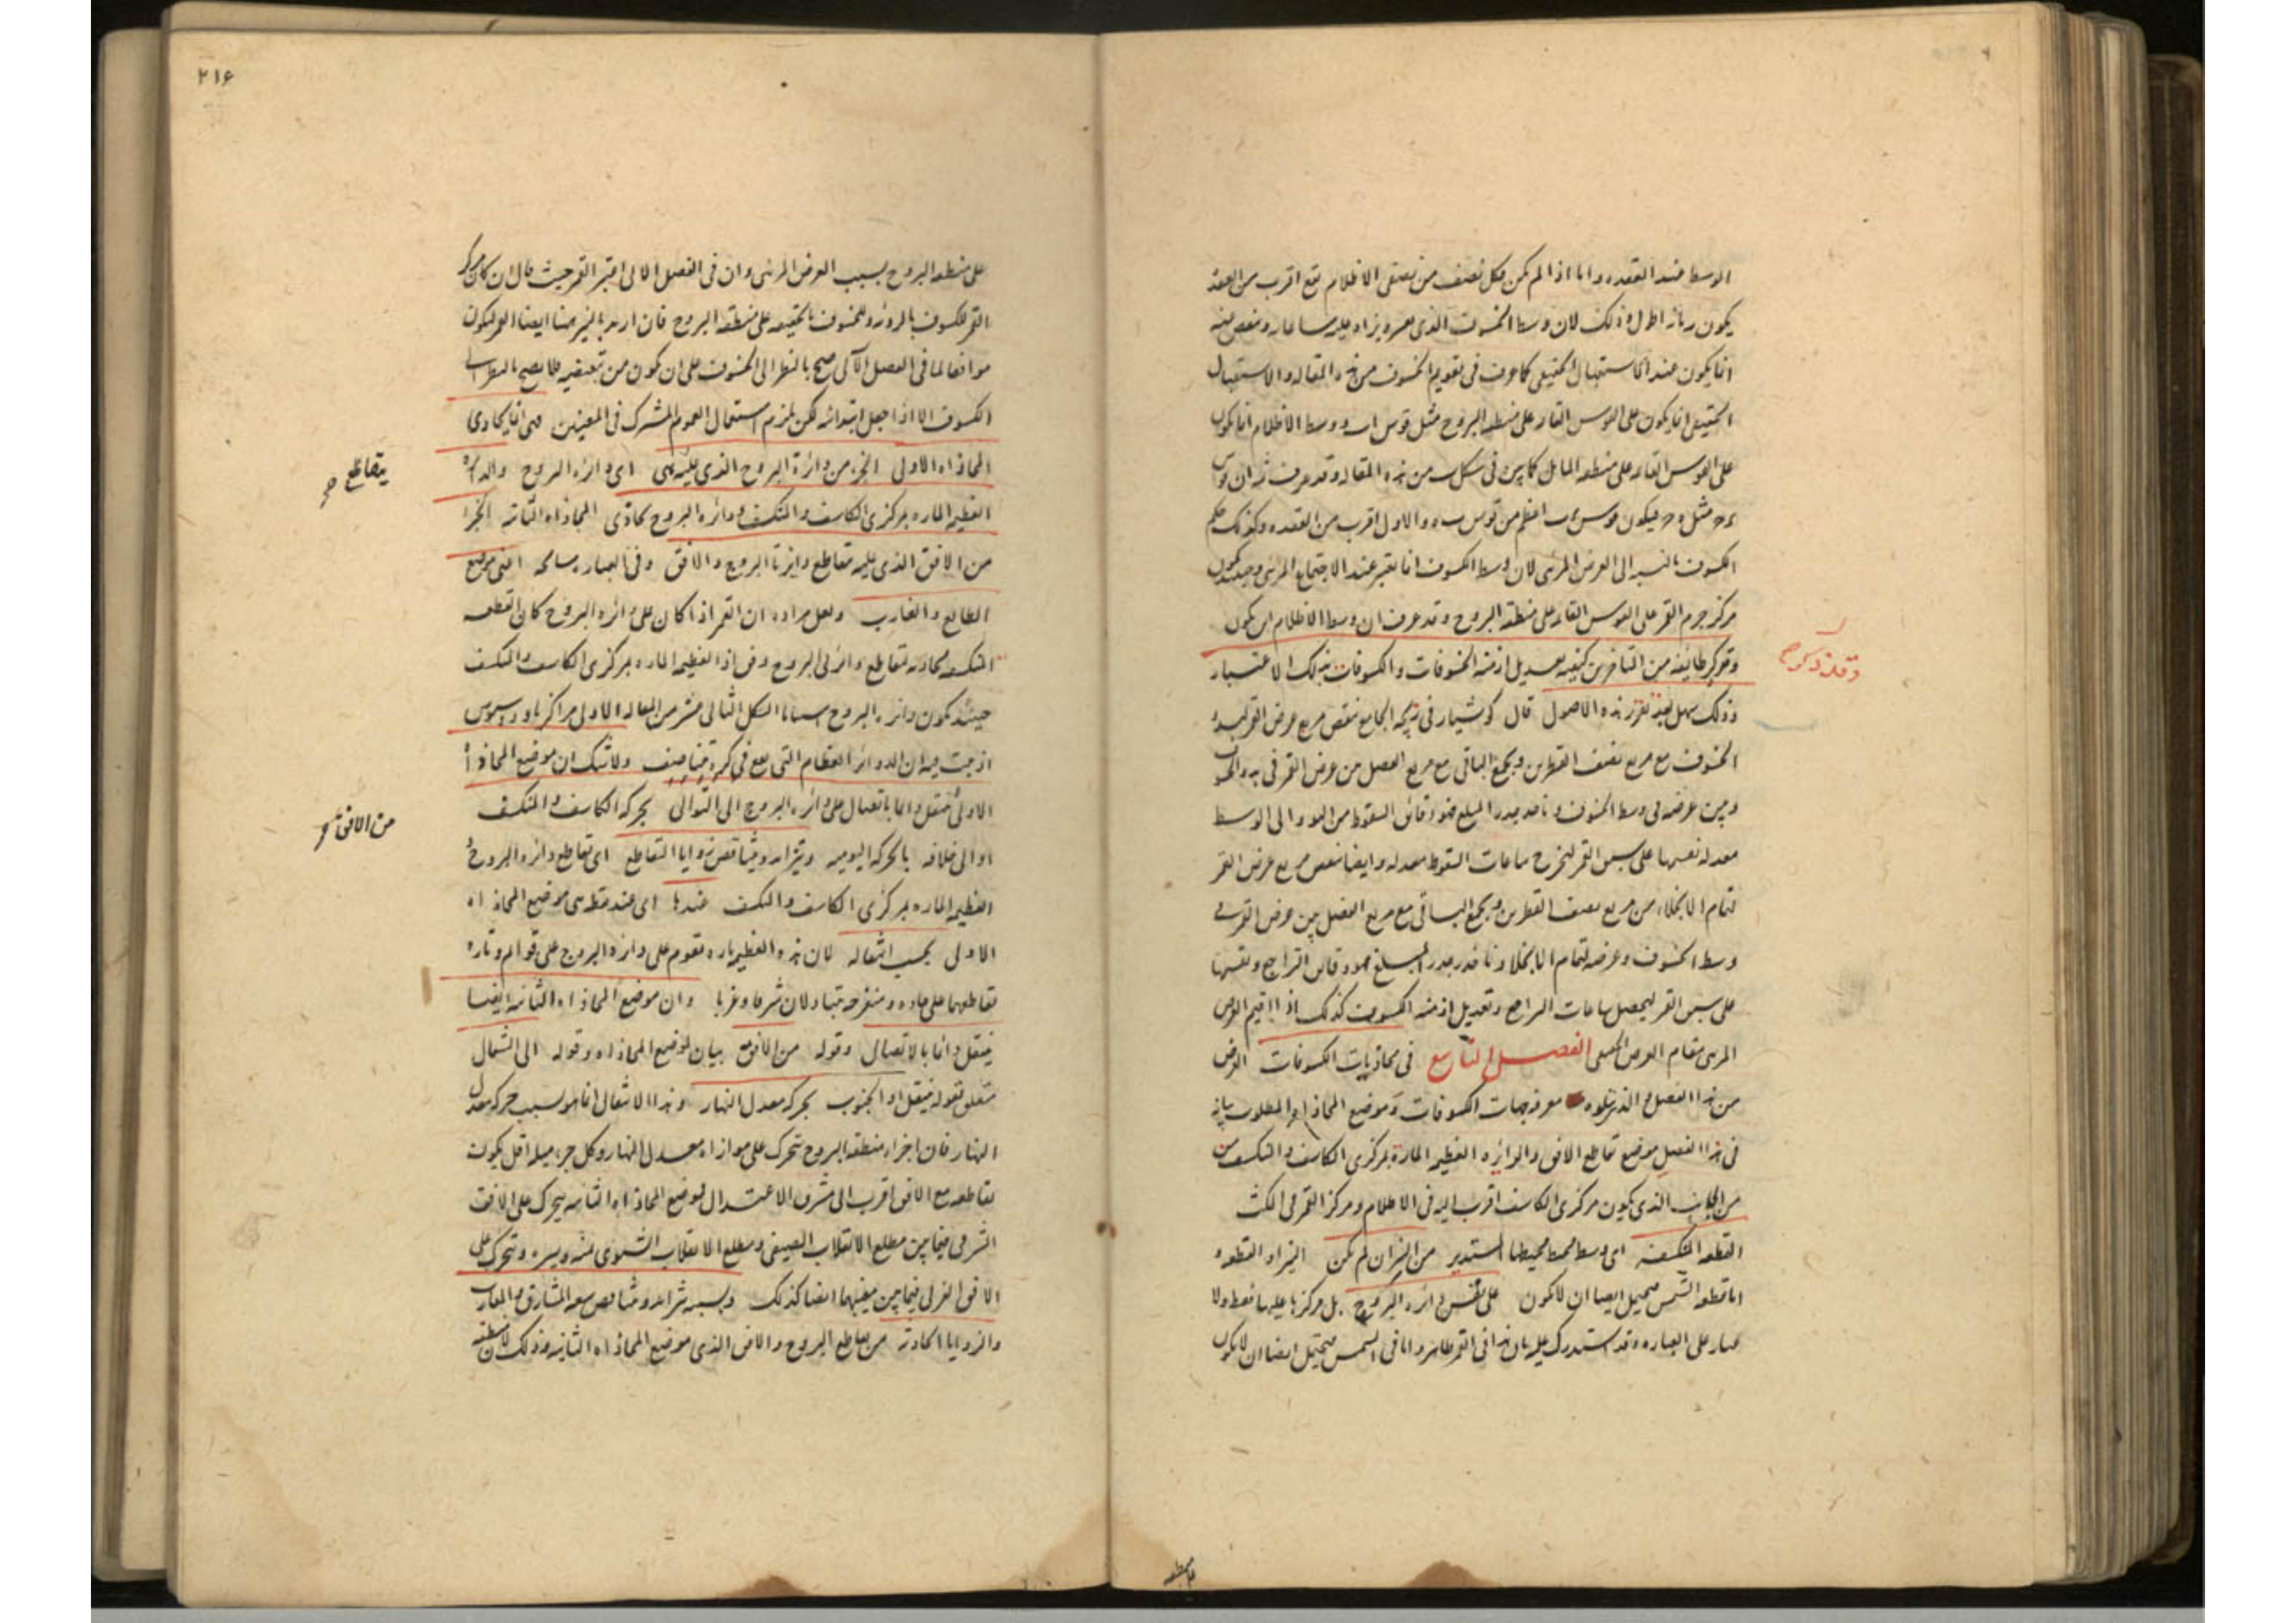 الوسط عند العقده واما اذا لم يكن فكل نصف من نصفى الاظلام يقع اقرب من العقد
يكون زمانه اطول وذلك لان وسط الخسوف الذى يزاد عليه ساعاته وينقص منه
انما يكون عند الاستقبال الحقيقى كما عرف فى تقويم الخسوف من هذه المقاله والاستقبال
الحقيقى انما يكون على القوس القائمه على منطقه البروج مثل قوس اب ووسط الاظلام انما يكون
على القوس القائمه على منطقه المائل كما بين فى شكل من هذه المقاله وقد عرف ثمه ان قوس
مثل فيكون قوس اعظم من قوس والاول اقرب من العقده وكذلك حكم
الكسوف بالنسبه الى العرض المرئى لان وسط الكسوف انما يعتبر عند الاجتماع المرئى وحينئذ يكون
مركز جرم القمر على القوس القائمه على منطقه البروج وقد عرف ان وسط الاظلام اين يكون
وقد ذكر طائفه من المتاخرين كيفيه تعديل ازمنه الخسوفات والكسوفات بذلك الاعتبار
وقد ذكر صح
وذلك سهل بعد تقرر هذه الاصول قال كوشيار فى زيجه الجامع ننقص مربع عرض القمر لبدو
الخسوف مع مربع نصف القطرين ويجمع الباقى مع مربع الفضل من عرض القمر فى بدو الخسوف
وبين عرضه فى وسط الخسوف وناخذ جذر المبلغ فهو دقائق السقوط من البدو الى الوسط
معدله نقسمها على سبق القمر ليخرج ساعات السقوط معدله وايضا ننقص مربع عرض القمر
لتمام الانجلاء من مربع نصف القطرين ويجمع الباقى مع مربع الفضل بين عرض القمر فى
وسط الخسوف وعرضه لتمام الانجلا وناخذ جذر المبلغ فهو دقائق التراجع ونقسمها
على سبق القمر ليحصل ساعات التراجع وتعديل ازمنه الكسوف كذلك اذا اقيم العرض
المرئى مقام العرض الحقيقى الفصل التاسع فى محاذيات الكسوفات الغرض
من هذا الفصل والذى يتلوه معرفه جهات الكسوفات وموضع المحاذاه المطلوب بيانه
فى هذا الفصل موضع تقاطع الافق والدائره العظيمه الماره بمركزى الكاسف والمنكسف من
من الجانب الذى يكون مركزى الكاسف اقرب اليه فى الاظلام ومركز القمر فى المكث
القطعه المنكسفه اى وسط محيطها المستدير من النيران لم يكن النيراو القطعه
اما قطعه الشمس فيحتمل ايضا ان لا يكون على نفس دائره البروج بل مركزها عليها فقط ولا
غبار على العباره وقد استدرك عليه بان هذا فى القمر ظاهر واما فى الشمس فيحتمل ايضا ان لا يكون
٢١۶
على منطقه البروج بسبب العرض المرئى وان فى الفصل الاتى اعتبر القمر حيث قال ان كان مركز
القمر للكسوف بالرؤيه وللخسوف بالحقيقه على منطقه البروج فان اريد بالنير هنا ايضا القمر ليكون
موافقا لما فى الفصل الاتى صح بالنظر الى الخسوف على ان يكون من تبعيضيه فلا يصح بالنظر الى
الكسوف الا اذا جعل ابتدائيه لكن يلزم استعمال العموم المشترك فى المعنيين فهى انما يحاذى
المحاذاه الاولى الجزء من دائرة البروج الذى عليه هى اى دائره البروج والدائره
العظيمه الماره بمركزى الكاسف والمنكسف ودائره البروج يحاذى المحاذاه الثانيه الجزء
من الافق الذى عليه تقاطع دايرتا البروج والافق وفى العباره مسامحه اعنى موضع
يتقاطع صح
الطالع والغارب ولعل مراده ان القمر اذا كان على دائره البروج كان القطعه
المنكسفه محاذيه لتقاطع دائرتى البروج والعظيمه الماره بمركزى الكاسف والمنكسف
حينئذ يكون دائره البروج بالشكل الثانى عشر من المقاله الاولى من اكر ثاوذوسيوس
اذ يثبت فيه ان الدوائر العظام التى تقع فى كره تتناصف ولا شك ان موضع المحاذاه
الاولى منتقل دائما باتصال على دائره البروج الى التوالى بحركه الكاسف والمنكسف
من الافق صح
او الى خلافه بالحركه اليوميه ويتزايد ويتناقص زوايا التقاطع اى تقاطع دائره البروج و
العظيمه الماره بمركزى الكاسف والمنكسف عندها اى عند نقطه هى موضع المحاذاه
الاولى بحسب انتقاله لان هذه العظيمه تاره تقوم على دائره البروج على قوائم وتاره
تقاطعها على حاده ومنفرجه تتبادلان شرقا وغربا وان موضع المحاذاه الثانيه ايضا
ينتقل دائما بالاتصال وقوله من الافق بيان لموضع المحاذاه وقوله الى الشمال
متعلق بقوله ينتقل او الجنوب بحركه معدل النهار وهذا الانتقال انما هو بسبب حركه معدل
النهار فان اجزاء منطقه البروج تتحرك على موازاه معدل النهار وكل جزء ميله اقل يكون
تقاطعه مع الافق اقرب الى مشرق الاعتدال فموضع المحاذاه الثانيه يتحرك على الافق
الشرقى فيما بين مطلع الانقلاب الصيفى ومطلع الانقلاب الشتوى منه ويتحرك على
الافق الغربى فيما بين مغيبهما ايضا كذلك وبسببه تتزايد وتتناقص سعه المشارق والمغارب
والزوايا الحادثه من تقاطع البروج والافق الذى موضع المحاذاه الثانيه وذلك لان منطقه